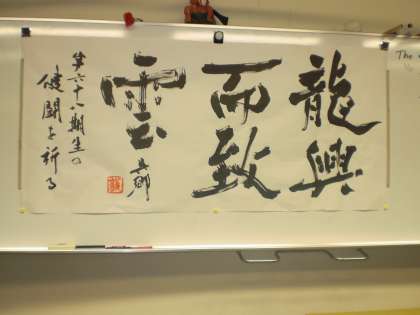 龍興
而致
雲
第六十八期生の
健闘を祈る
The